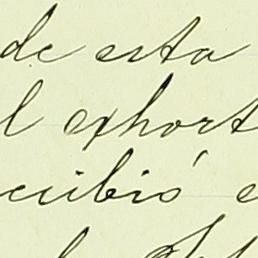 de esta
l exhort
cibió e